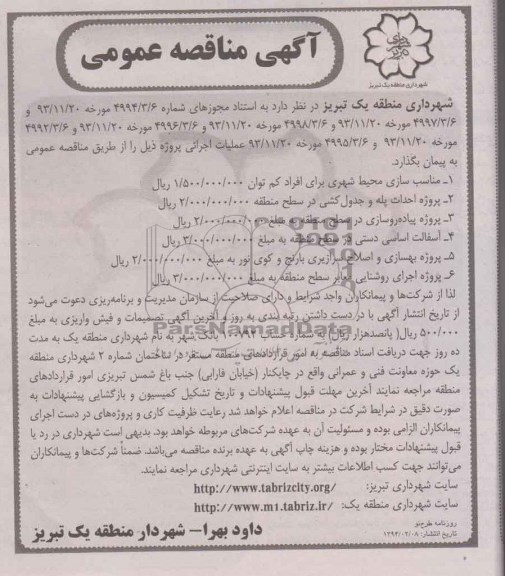 آگهی مناقصه عمومی
شهرداری منطقه یک تبریز
شهرداری منطقه یک تبریز در نظر دارد به استناد مجوزهای شماره ۴۹۹۴/۳/۶ مورخه ۹۳/۱۱/۲۰ و
۴۹۹۷/۳/۶ مورخه ۹۳/۱۱/۲۰ و ۴۹۹۸/۳/۶ مورخه ۹۳/۱۱/۲۰ و ۴۹۹۶/۳/۶ مورخه ۹۳/۱۱/۲۰ و ۴۹۹۲/۳/۶
مورخه ۹۳/۱۱/۲۰ و ۴۹۹۵/۳/۶ مورخه ۹۳/۱۱/۲۰ عملیات اجرائی پروژه ذیل را از طریق مناقصه عمومی
به پیمان بگذارد.
۱ـ مناسب سازی محیط شهری برای افراد کم توان ۱/۵۰۰/۰۰۰/۰۰۰ ریال
۲ـ پروژه احداث پله و جدول‌کشی در سطح منطقه ۲/۰۰۰/۰۰۰/۰۰۰ ریال
۳ـ پروژه پیاده‌روسازی در سطح منطقه به مبلغ ۲/۰۰۰/۰۰۰/۰۰۰ ریال
۴ـ آسفالت اساسی دستی در سطح منطقه به مبلغ ۳/۰۰۰/۰۰۰/۰۰۰ ریال
۵ـ پروژه بهسازی و اصلاح سرازیری بارنج و کوی نور به مبلغ ۲/۰۰۰/۰۰۰/۰۰۰ ریال
۶ـ پروژه اجرای روشنایی معابر سطح منطقه به مبلغ ۳/۰۰۰/۰۰۰/۰۰۰ ریال
لذا از شرکت‌ها و پیمانکاران واجد شرایط و دارای صلاحیت از سازمان مدیریت و برنامه‌ریزی دعوت می‌شود
از تاریخ انتشار آگهی با در دست داشتن رتبه بندی به روز و آخرین آگهی تصمیمات و فیش واریزی به مبلغ
۵۰۰/۰۰۰ ریال( پانصدهزار ریال) به شماره حساب بانک شهر به نام شهرداری منطقه یک به مدت
ده روز جهت دریافت اسناد مناقصه به امور قراردادهای منطقه مستقر در ساختمان شماره ۲ شهرداری منطقه
یک حوزه معاونت فنی و عمرانی واقع در چایکنار (خیابان فارابی) جنب باغ شمس تبریزی امور قراردادهای
منطقه مراجعه نمایند آخرین مهلت قبول پیشنهادات و تاریخ تشکیل کمیسیون و بازگشایی پیشنهادات به
صورت دقیق در شرایط شرکت در مناقصه اعلام خواهد شد رعایت ظرفیت کاری و پروژه‌های در دست اجرای
پیمانکاران الزامی بوده و مسئولیت آن به عهده شرکت‌های مربوطه خواهد بود. بدیهی است شهرداری در رد یا
قبول پیشنهادات مختار بوده و هزینه چاپ آگهی به عهده برنده مناقصه می‌باشد. ضمناً شرکت‌ها و پیمانکاران
می‌توانند جهت کسب اطلاعات بیشتر به سایت اینترنتی شهرداری مراجعه نمایند.
سایت شهرداری تبریز: http://www.tabrizcity.org/
سایت شهرداری منطقه یک: http://www.m1.tabriz.ir/
داود بهرا– شهردار منطقه یک تبریز
روزنامه طرح‌نو
تاریخ انتشار: ۱۳۹۴/۰۲/۰۸
ParsNamadData